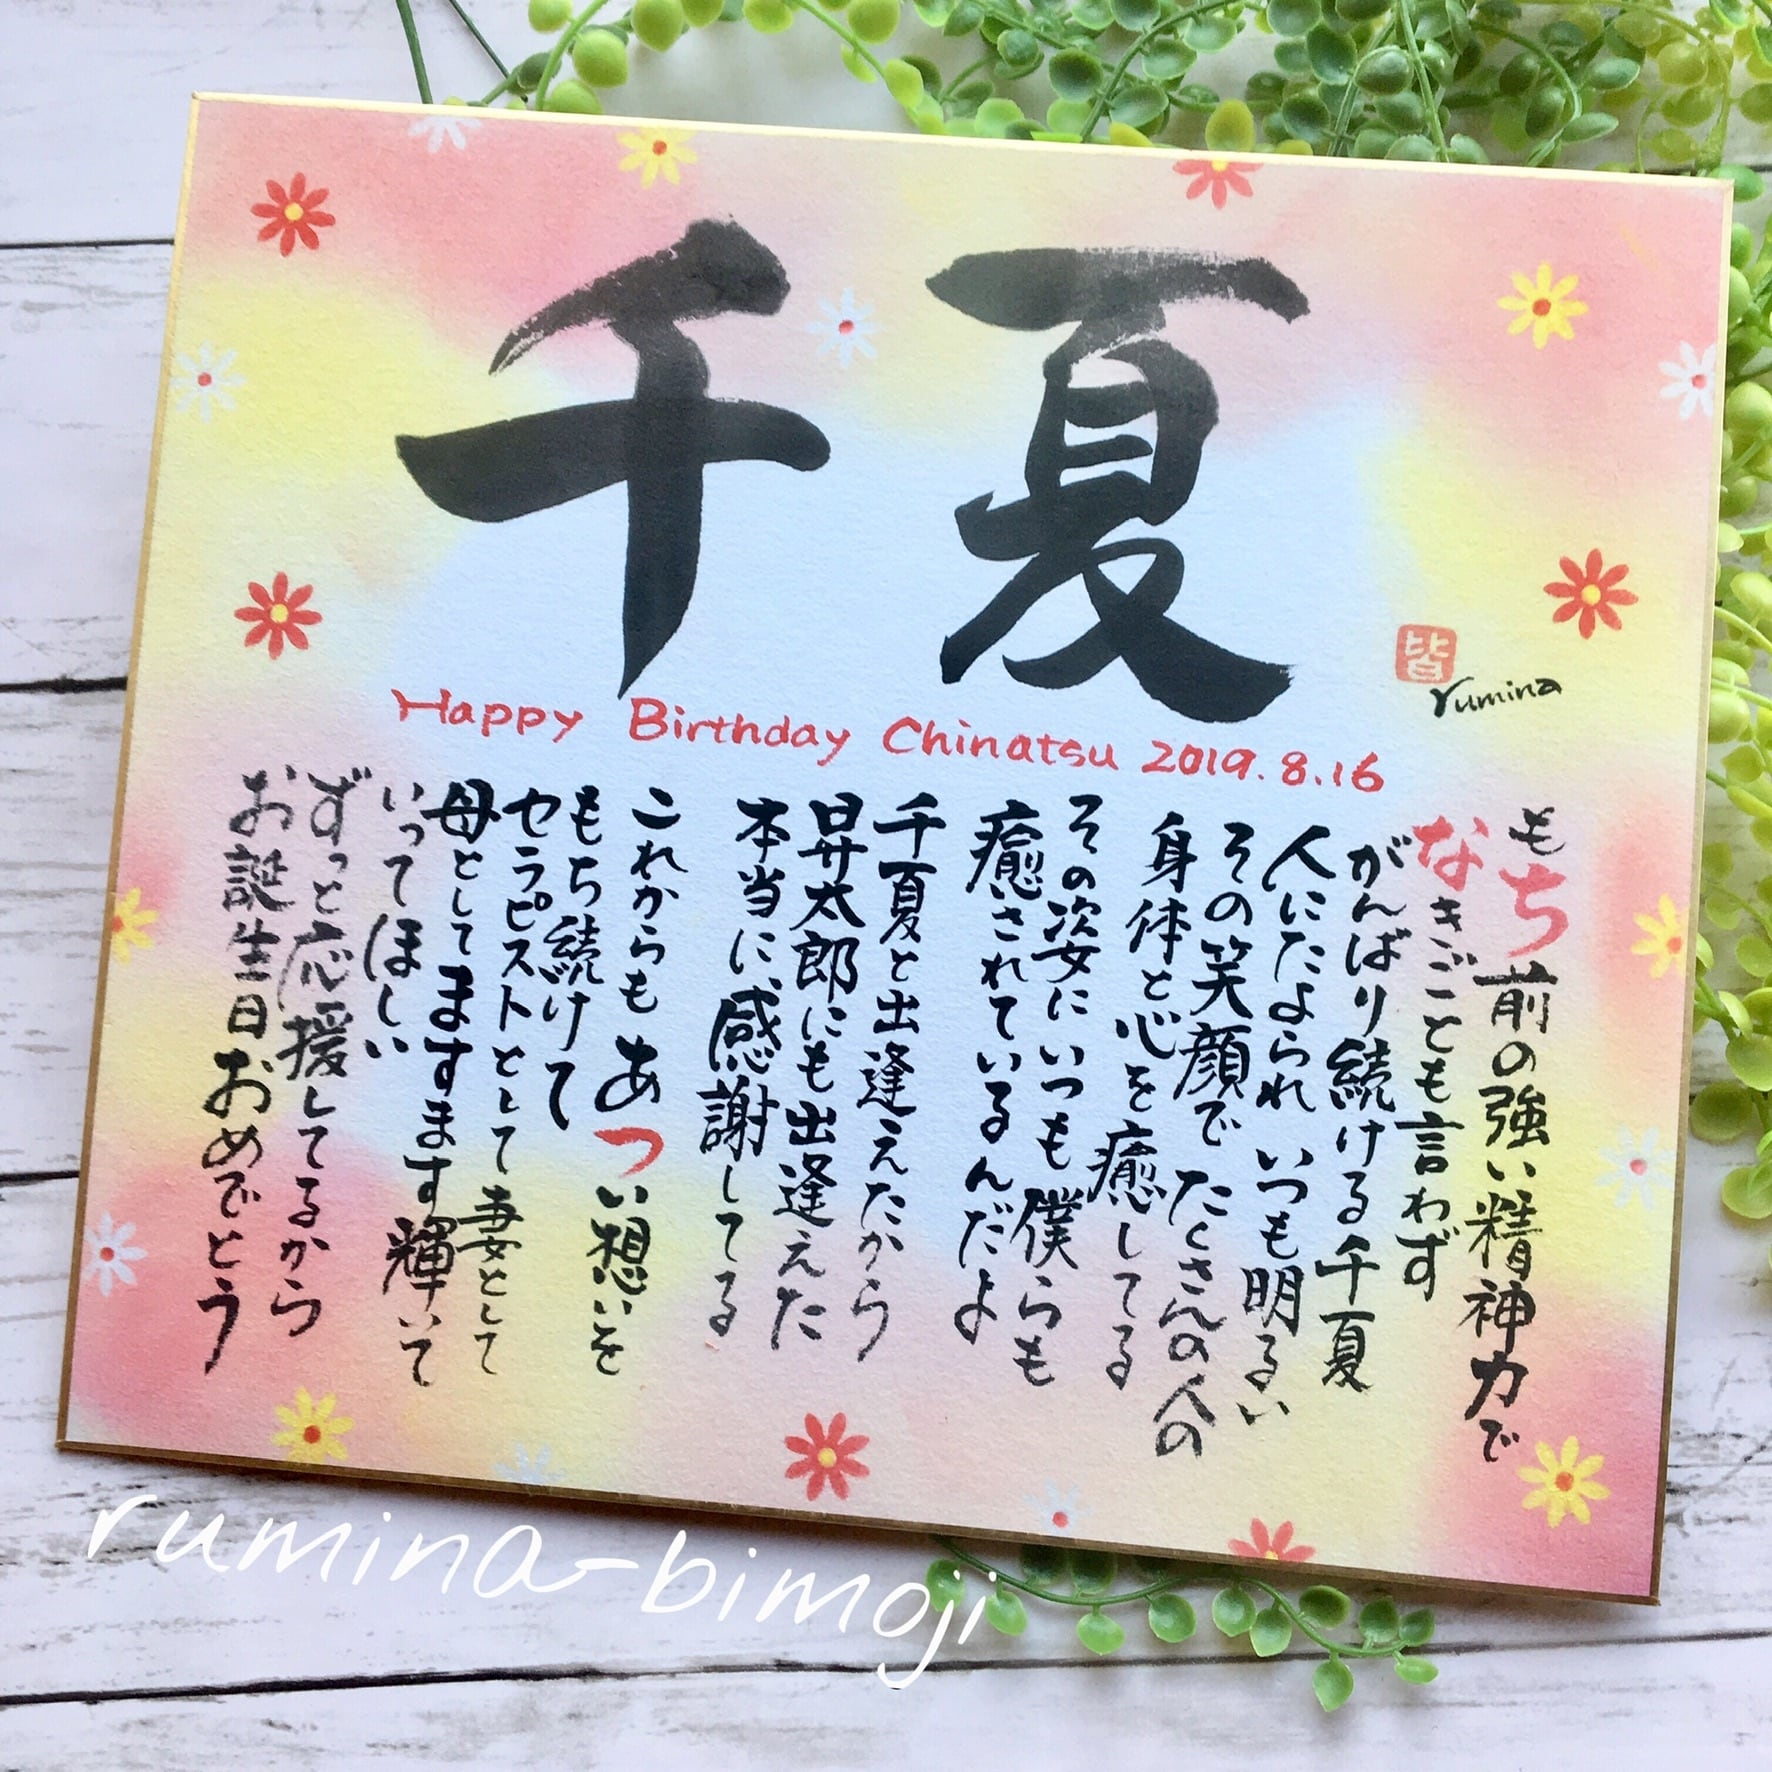 千夏
Happy Birthday Chinatsu 2019.8.16
皆
rumina
もち前の強い精神力で
なきごとも言わず
がんばり続ける千夏
人にたよられ いつも明るい
その笑顔で たくさんの人の
身体と心を癒してる
その姿にいつも僕らも
癒されているんだよ
千夏と出逢えたから
昇太郎にも出逢えた
本当に感謝してる
これからもあつい想いを
もち続けて
セラピストとして 妻として
母としてますます輝いて
いってほしい
ずっと応援してるから
お誕生日おめでとう
rumina-bimoji